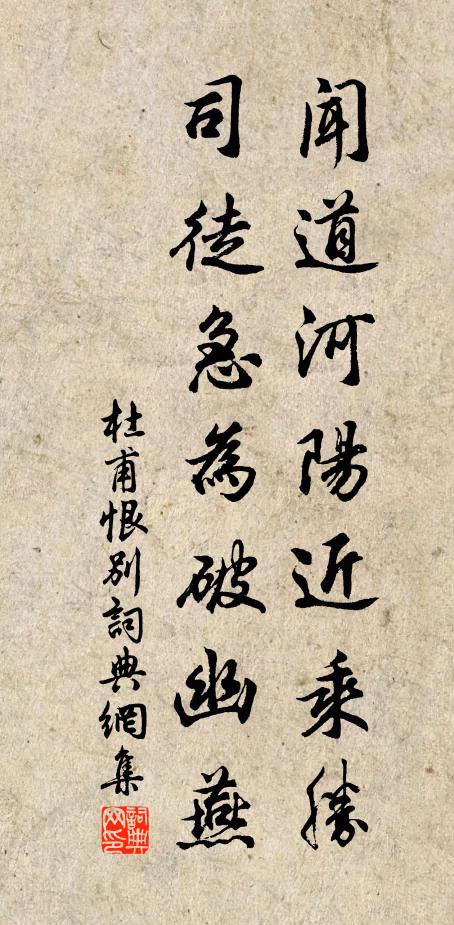 聞道河陽近乘勝
司徒急為破幽燕
杜甫恨別詞典網集
詞典網印